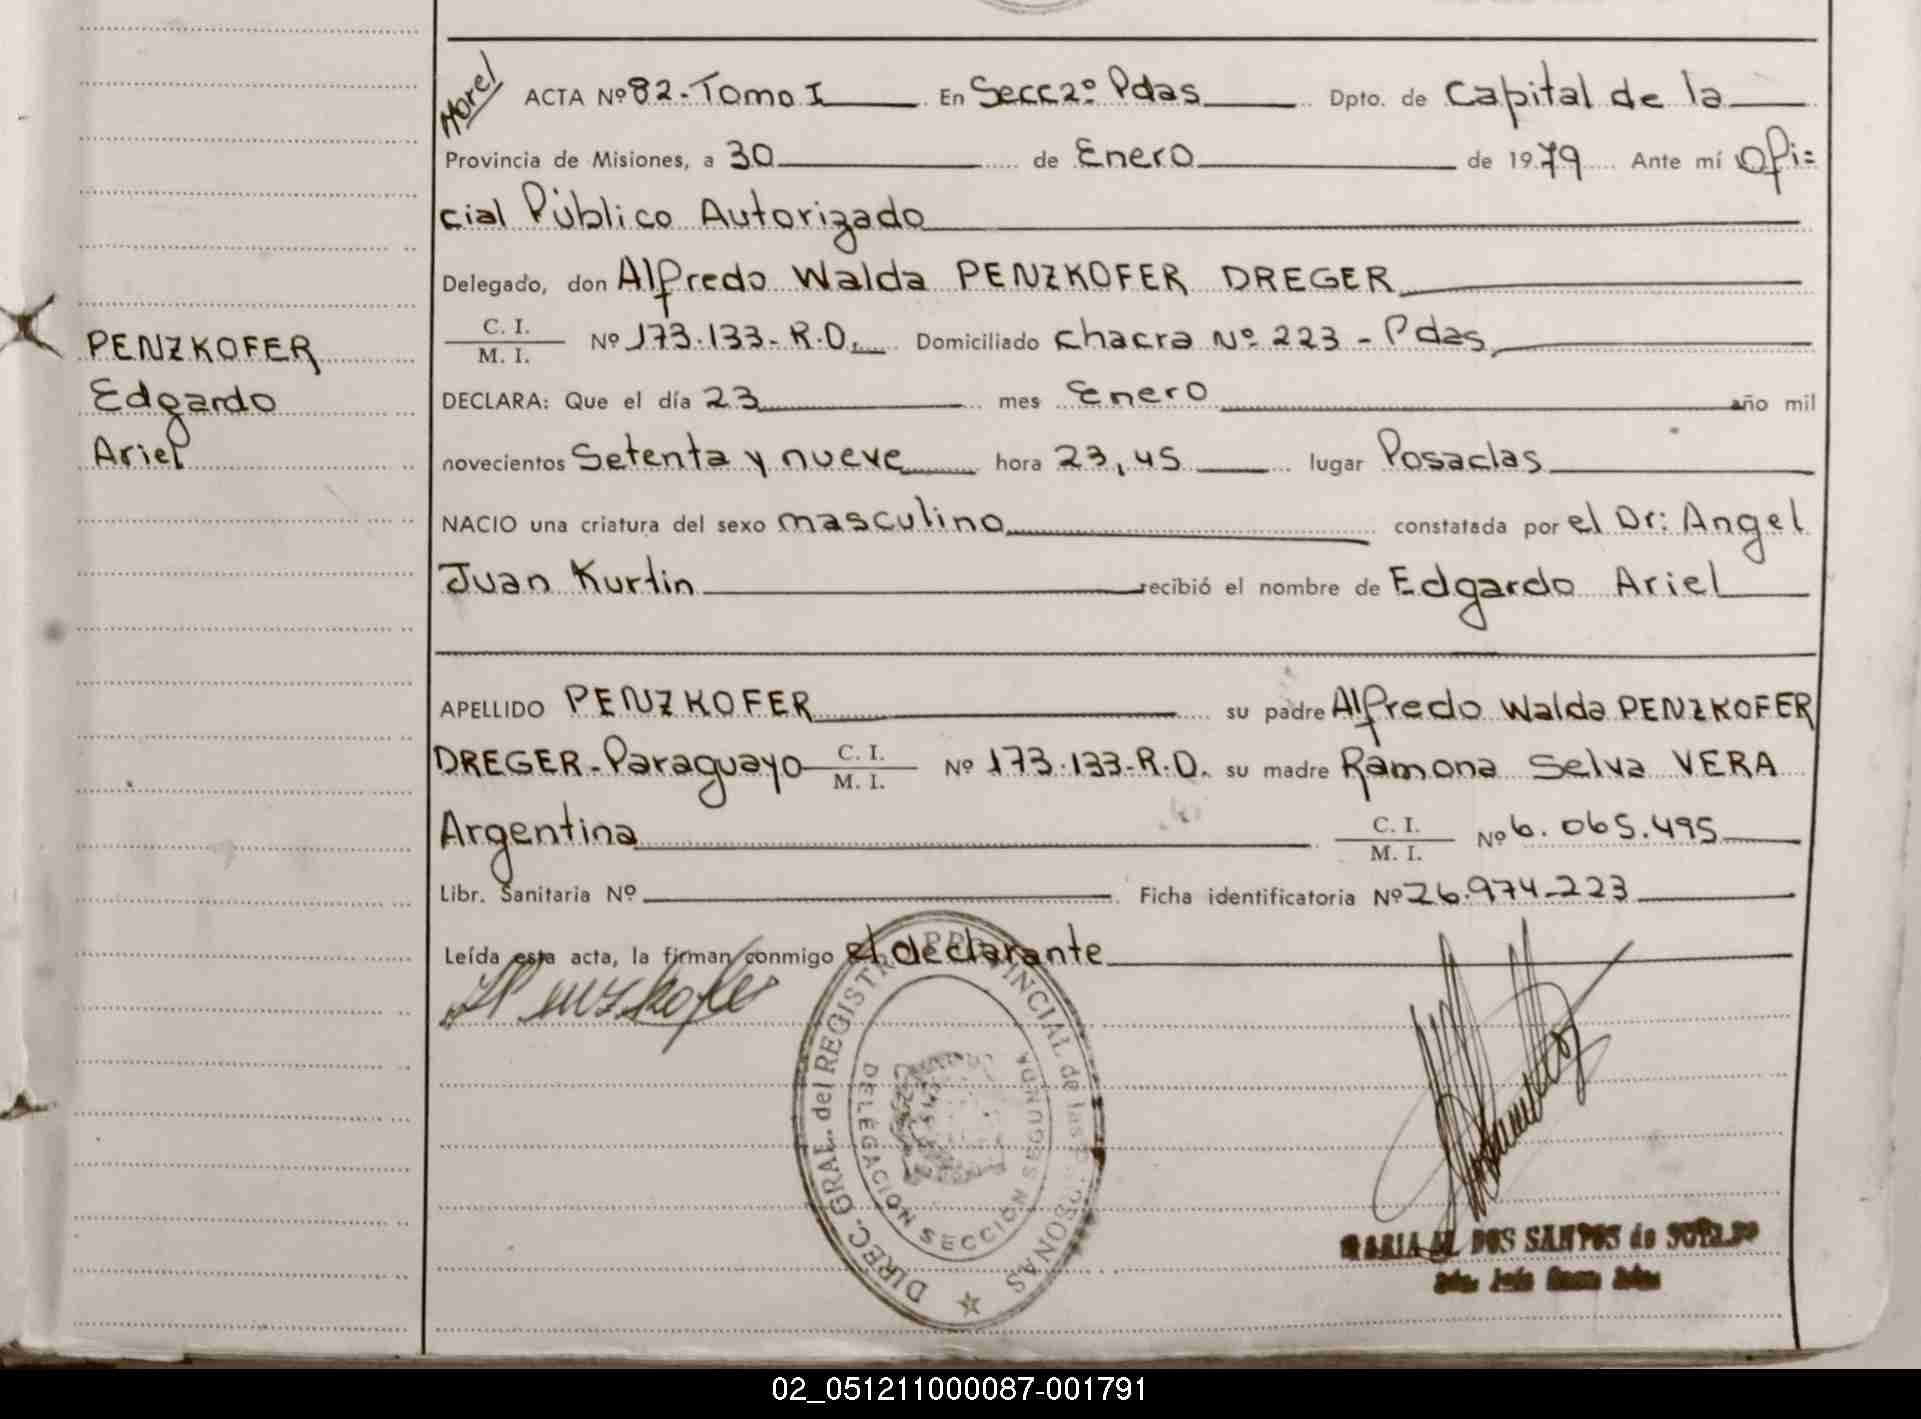 Morel
ACTA Nº 82 - Tomo I En Secc 2º Pdas Dpto. de Capital de la
Provincia de Misiones, a 30 de Enero de 1979 Ante mí Ofi=
cial Público Autorizado
Delegado, don Alfredo Walda PENZKOFER DREGER
C. I.
M. I. Nº 173.133-R.D. Domiciliado chacra Nº 223 - Pdas
DECLARA: Que el día 23 mes Enero año mil
novecientos Setenta y nueve hora 23,45 lugar Posadas
NACIO una criatura del sexo masculino constatada por el Dr: Angel
Juan Kurtin recibió el nombre de Edgardo Ariel
PENZKOFER
Edgardo
Ariel
APELLIDO PENZKOFER su padre Alfredo Walda PENZKOFER
DREGER - Paraguayo C. I. M. I. Nº 173.133-R.D. su madre Ramona Selva VERA
Argentina C. I. M. I. Nº 6.065.495
Libr. Sanitaria Nº Ficha identificatoria Nº 26.974-223
Leída esta acta, la firman conmigo el declarante
DIREC. GRAL. del REGISTRO PROVINCIAL de las PERSONAS
DELEGACION SECCION SEGUNDA
MARIA DOS SANTOS de
02_051211000087-001791